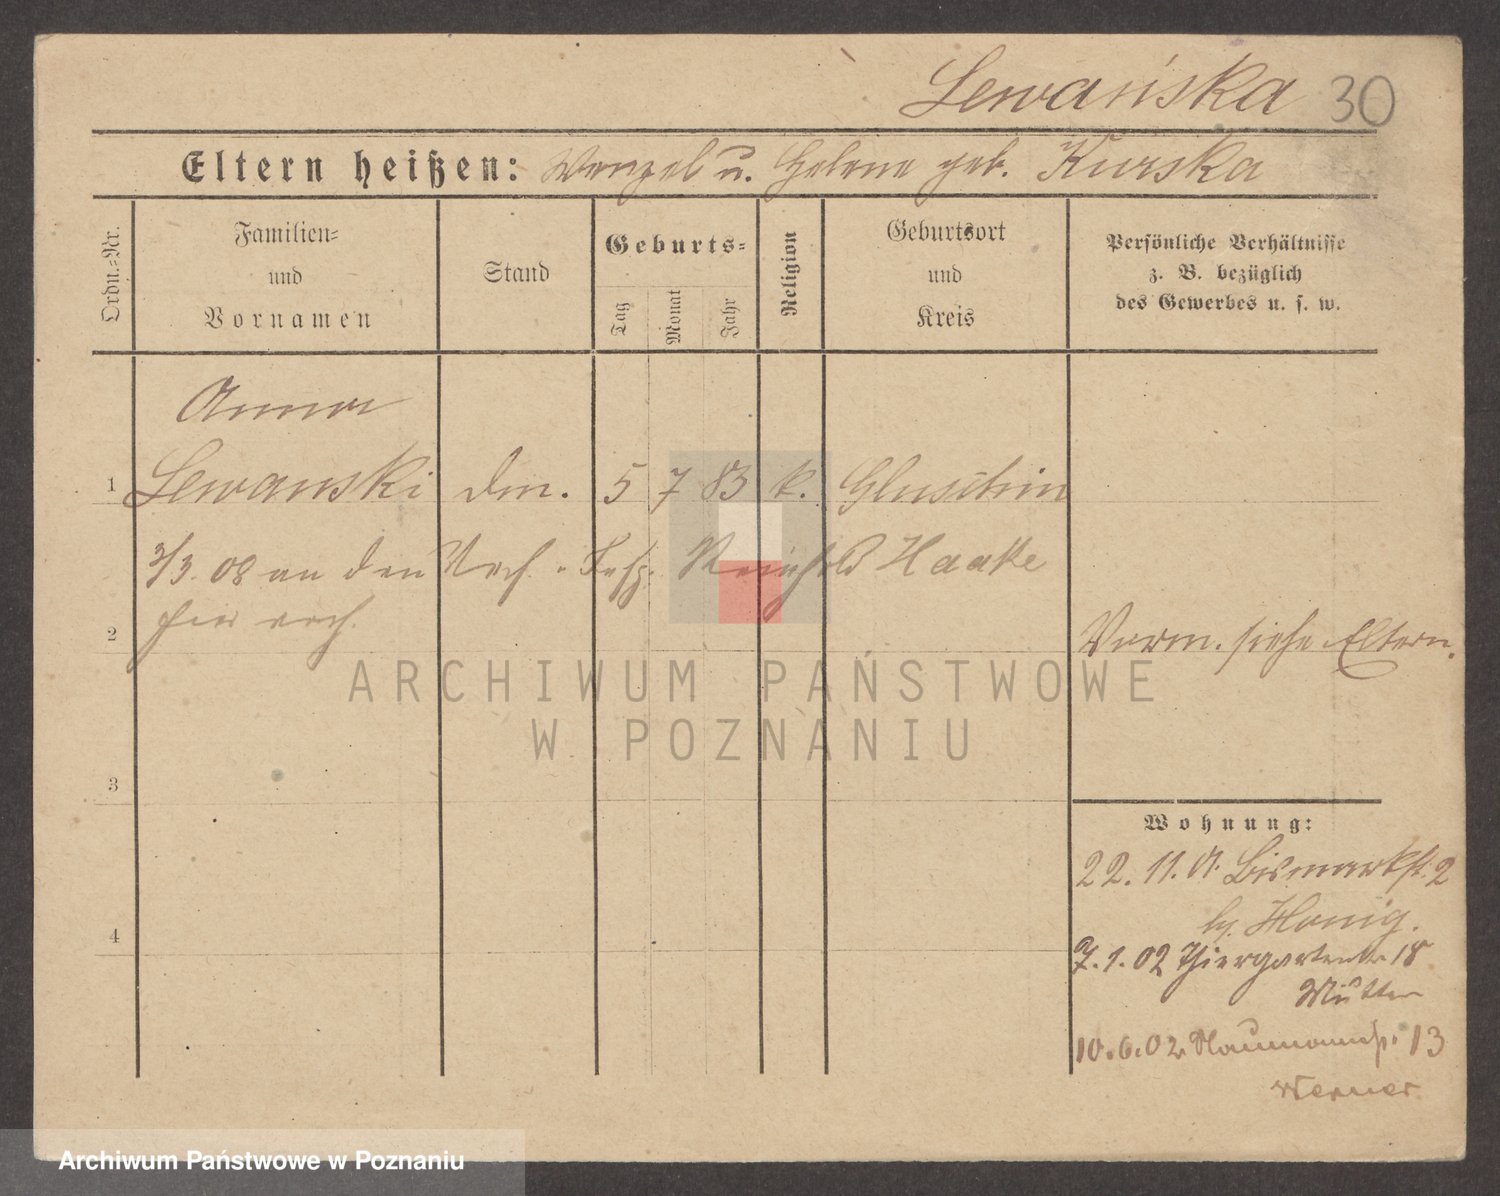 Lewańska 30
Eltern heißen: Wenzel u. Helene geb. Kurska
Ordn.-Nr.
Familien-
und
Vornamen
Stand
Geburts-
Tag
Monat
Jahr
Religion
Geburtsort
und
Kreis
Persönliche Verhältnisse
z. B. bezüglich
des Gewerbes u. s. w.
Anna
1 Lewanski 5 7 83 k. Gluschin
3/3. 08 an den Reinhold Haake
2
Verm. siehe Eltern.
ARCHIWUM PAŃSTWOWE
W POZNANIU
3
Wohnung:
22. 11. 01. Bismarkstr. 2
b. Honig.
4
7. 1. 02 Thiergartenstr 18
Mutter
10. 6. 02 Naumannstr. 13
Werner
Archiwum Państwowe w Poznaniu